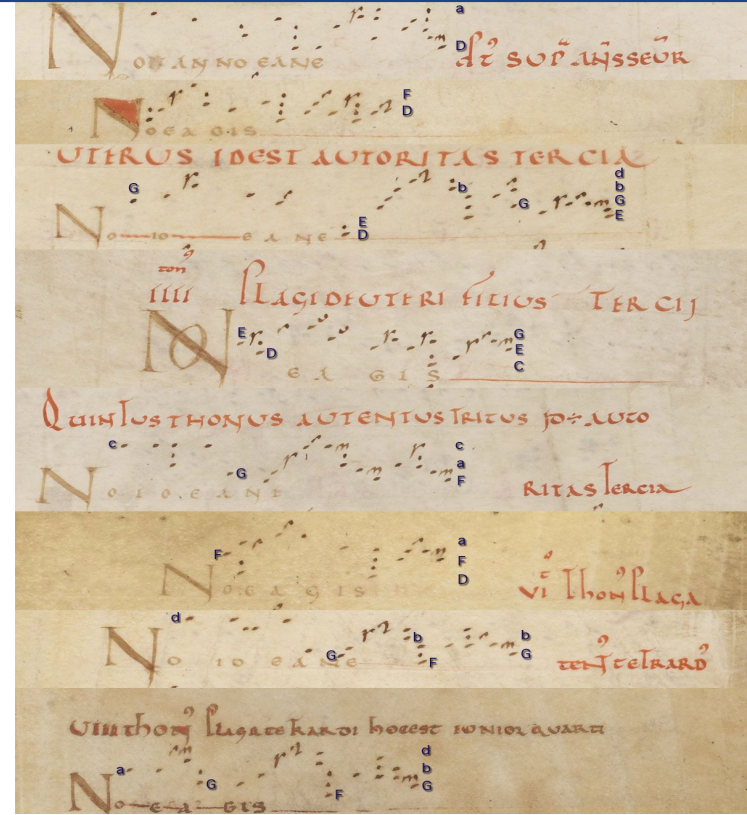 a
D
NON ANNO EANE
F
D
NOEAGIS
UTERUS IDEST AUTORITAS TERCIA
G
b
d
b
G
E
G
E
D
NOIOEANE
IIII
PLAGIDEUTERI FILIUS TERCIJ
E
D
G
E
C
NOEAGIS
QUINTUS THONUS AUTENTUS TRITUS P AUTO
c
c
a
F
G
NOIO.EANE
RITAS TERCIA
F
a
F
D
NO.EAGIS
VI THON PLAGA
d
G
b
F
b
G
NO IO EANE
TETRARD
VIII THON PLAGA TETRARDI HOCEST IUNIOR QUARTI
a
G
F
d
b
G
NOEAGIS